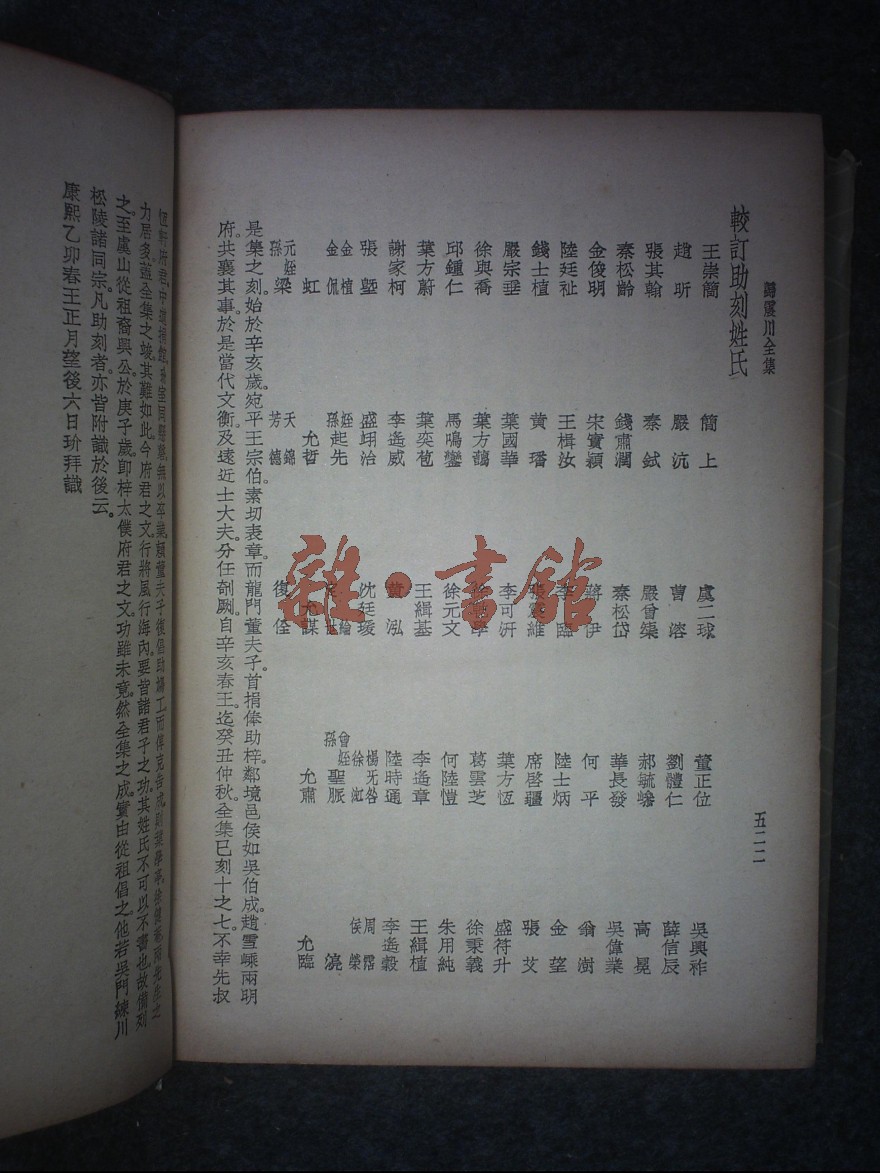 歸震川全集
五二二
較訂助刻姓氏
王崇簡 簡上 虞二球 董正位 吳興祚
趙昕 嚴沆 曹溶 劉體仁 薛信辰
張其翰 秦鉽 嚴曾榘 郝毓嶦 高晃
秦松齡 錢肅潤 秦松岱 華長發 吳偉業
金俊明 宋實穎 蔣伊 何平 翁澍
陸廷祉 王楫汝 李臨 陸士炳 金望
錢士植 黃璠 維 席啓疆 張艾
嚴宗垂 葉國華 李可妍 葉方恆 盛符升
徐與喬 葉方藹 葛雲芝 徐秉義
邱鍾仁 馬鳴鑾 徐元文 何陸愷 朱用純
葉方蔚 葉奕苞 王緝基 李遙章 王緝植
謝家柯 李遙威 黃泓 陸時通 李遙穀
張塈 盛翊治 沈廷璦 楊旡咎 徐 周霑 侯榮
金植 金侃 姪孫起先 曾姪孫聖脈 澆
虹 允哲 允謀 允肅 允臨
元姪孫梁 天錦 芳德 復侄
是集之刻。始於辛亥歲。宛平王宗伯。素切表章。而龍門董夫子。首捐俸助梓。鄰境邑侯如吳伯成。趙雪嵊兩明
府。共襄其事。於是當代文衡。及遠近士大夫。分任剞劂。自辛亥春王。迄癸丑仲秋。全集已刻十之七。不幸先叔
府君。中道捐館。無以卒業。賴董夫子復倡助竣工。而俾克告成。
力居多。蓋全集之竣。其難如此。今府君之文。行將風行海內。要皆諸君子之功。其姓氏不可以不書也。故備列
之。至虞山從祖裔興公。於庚子歲。卽梓太僕府君之文。功雖未竟。然全集之成。實由從祖倡之。他若吳門練川
松陵諸同宗。凡助刻者。亦皆附識於後云。
康熙乙卯春王正月望後六日玠拜識
雜·書館